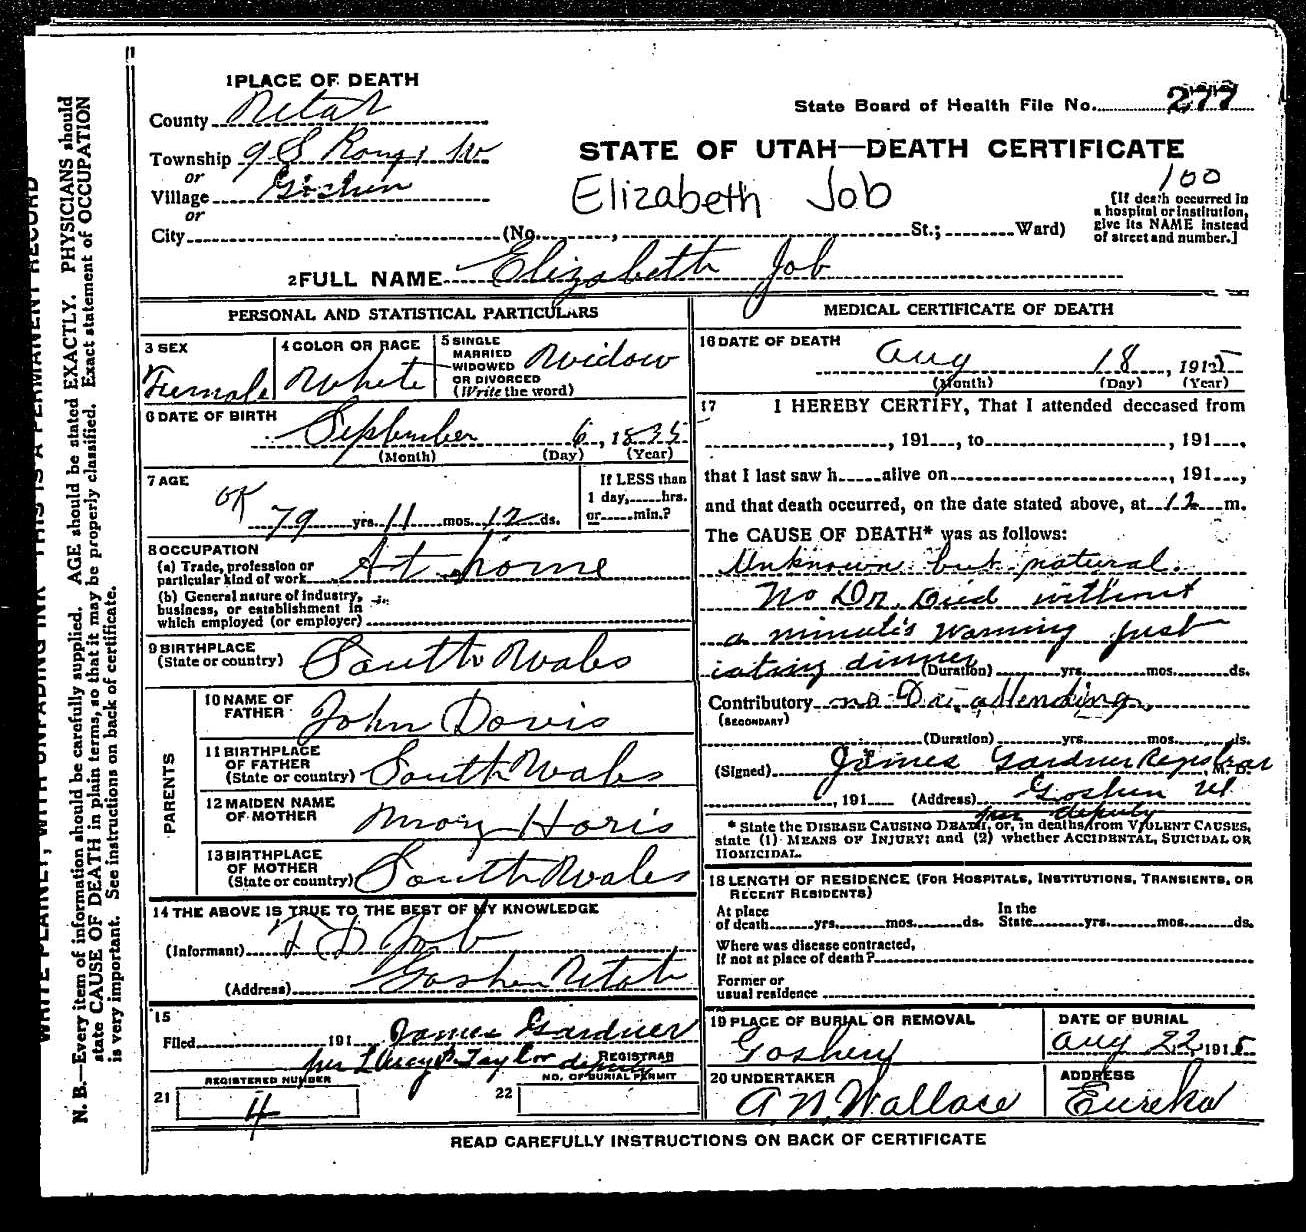 1 PLACE OF DEATH
County Utah
State Board of Health File No. 277
Township 9 S Range 1 W
or
Village Goshen
or
City (No. , St.; Ward)
STATE OF UTAH—DEATH CERTIFICATE
Elizabeth Job
100
[If death occurred in
a hospital or institution,
give its NAME instead
of street and number.]
2 FULL NAME Elizabeth Job
PERSONAL AND STATISTICAL PARTICULARS
3 SEX
Female
4 COLOR OR RACE
White
5 SINGLE
MARRIED
WIDOWED
OR DIVORCED
(Write the word)
Widow
6 DATE OF BIRTH
September 6, 1835
(Month) (Day) (Year)
7 AGE
OK
79 yrs. 11 mos. 12 ds.
If LESS than
1 day, hrs.
or min.?
8 OCCUPATION
(a) Trade, profession or
particular kind of work At home
(b) General nature of industry,
business, or establishment in
which employed (or employer)
9 BIRTHPLACE
(State or country) South Wales
PARENTS
10 NAME OF
FATHER John Davis
11 BIRTHPLACE
OF FATHER
(State or country) South Wales
12 MAIDEN NAME
OF MOTHER Mary Haris
13 BIRTHPLACE
OF MOTHER
(State or country) South Wales
14 THE ABOVE IS TRUE TO THE BEST OF MY KNOWLEDGE
(Informant) D Job
(Address) Goshen Utah
15
Filed 191 James Gardner
per Lucy B. Taylor deputy REGISTRAR
REGISTERED NUMBER
21 4
NO. OF BURIAL PERMIT
22
MEDICAL CERTIFICATE OF DEATH
16 DATE OF DEATH
Aug 18, 1915
(Month) (Day) (Year)
17 I HEREBY CERTIFY, That I attended deceased from
, 191 , to , 191 ,
that I last saw h alive on , 191 ,
and that death occurred, on the date stated above, at 12 m.
The CAUSE OF DEATH* was as follows:
Unknown but natural.
No Dr. Died without
a minute's warning just
eating dinner (Duration) yrs. mos. ds.
Contributory no Dr. attending.
(SECONDARY)
(Duration) yrs. mos. ds.
(Signed) James Gardner Registrar, M. D.
, 191 (Address) Goshen Ut
per deputy
* State the DISEASE CAUSING DEATH, or, in deaths from VIOLENT CAUSES,
state (1) MEANS OF INJURY; and (2) whether ACCIDENTAL, SUICIDAL OR
HOMICIDAL.
18 LENGTH OF RESIDENCE (FOR HOSPITALS, INSTITUTIONS, TRANSIENTS, OR
RECENT RESIDENTS)
At place
of death yrs. mos. ds.
In the
State yrs. mos. ds.
Where was disease contracted,
if not at place of death?
Former or
usual residence
19 PLACE OF BURIAL OR REMOVAL
Goshen
DATE OF BURIAL
Aug 22 1915
20 UNDERTAKER
A N. Wallace
ADDRESS
Eureka
READ CAREFULLY INSTRUCTIONS ON BACK OF CERTIFICATE
WRITE PLAINLY, WITH UNFADING INK—THIS IS A PERMANENT RECORD
N. B.—Every item of information should be carefully supplied. AGE should be stated EXACTLY. PHYSICIANS should
state CAUSE OF DEATH in plain terms, so that it may be properly classified. Exact statement of OCCUPATION
is very important. See instructions on back of certificate.